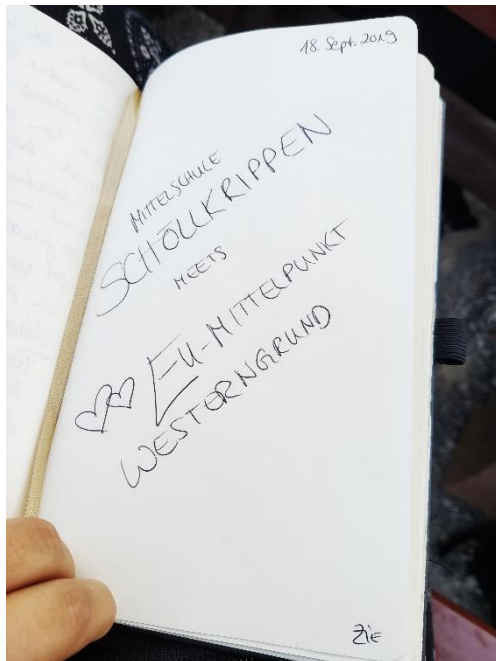 18. Sept. 2019
MITTELSCHULE
SCHÖLLKRIPPEN
MEETS
EU-MITTELPUNKT
WESTERNGRUND
Zie